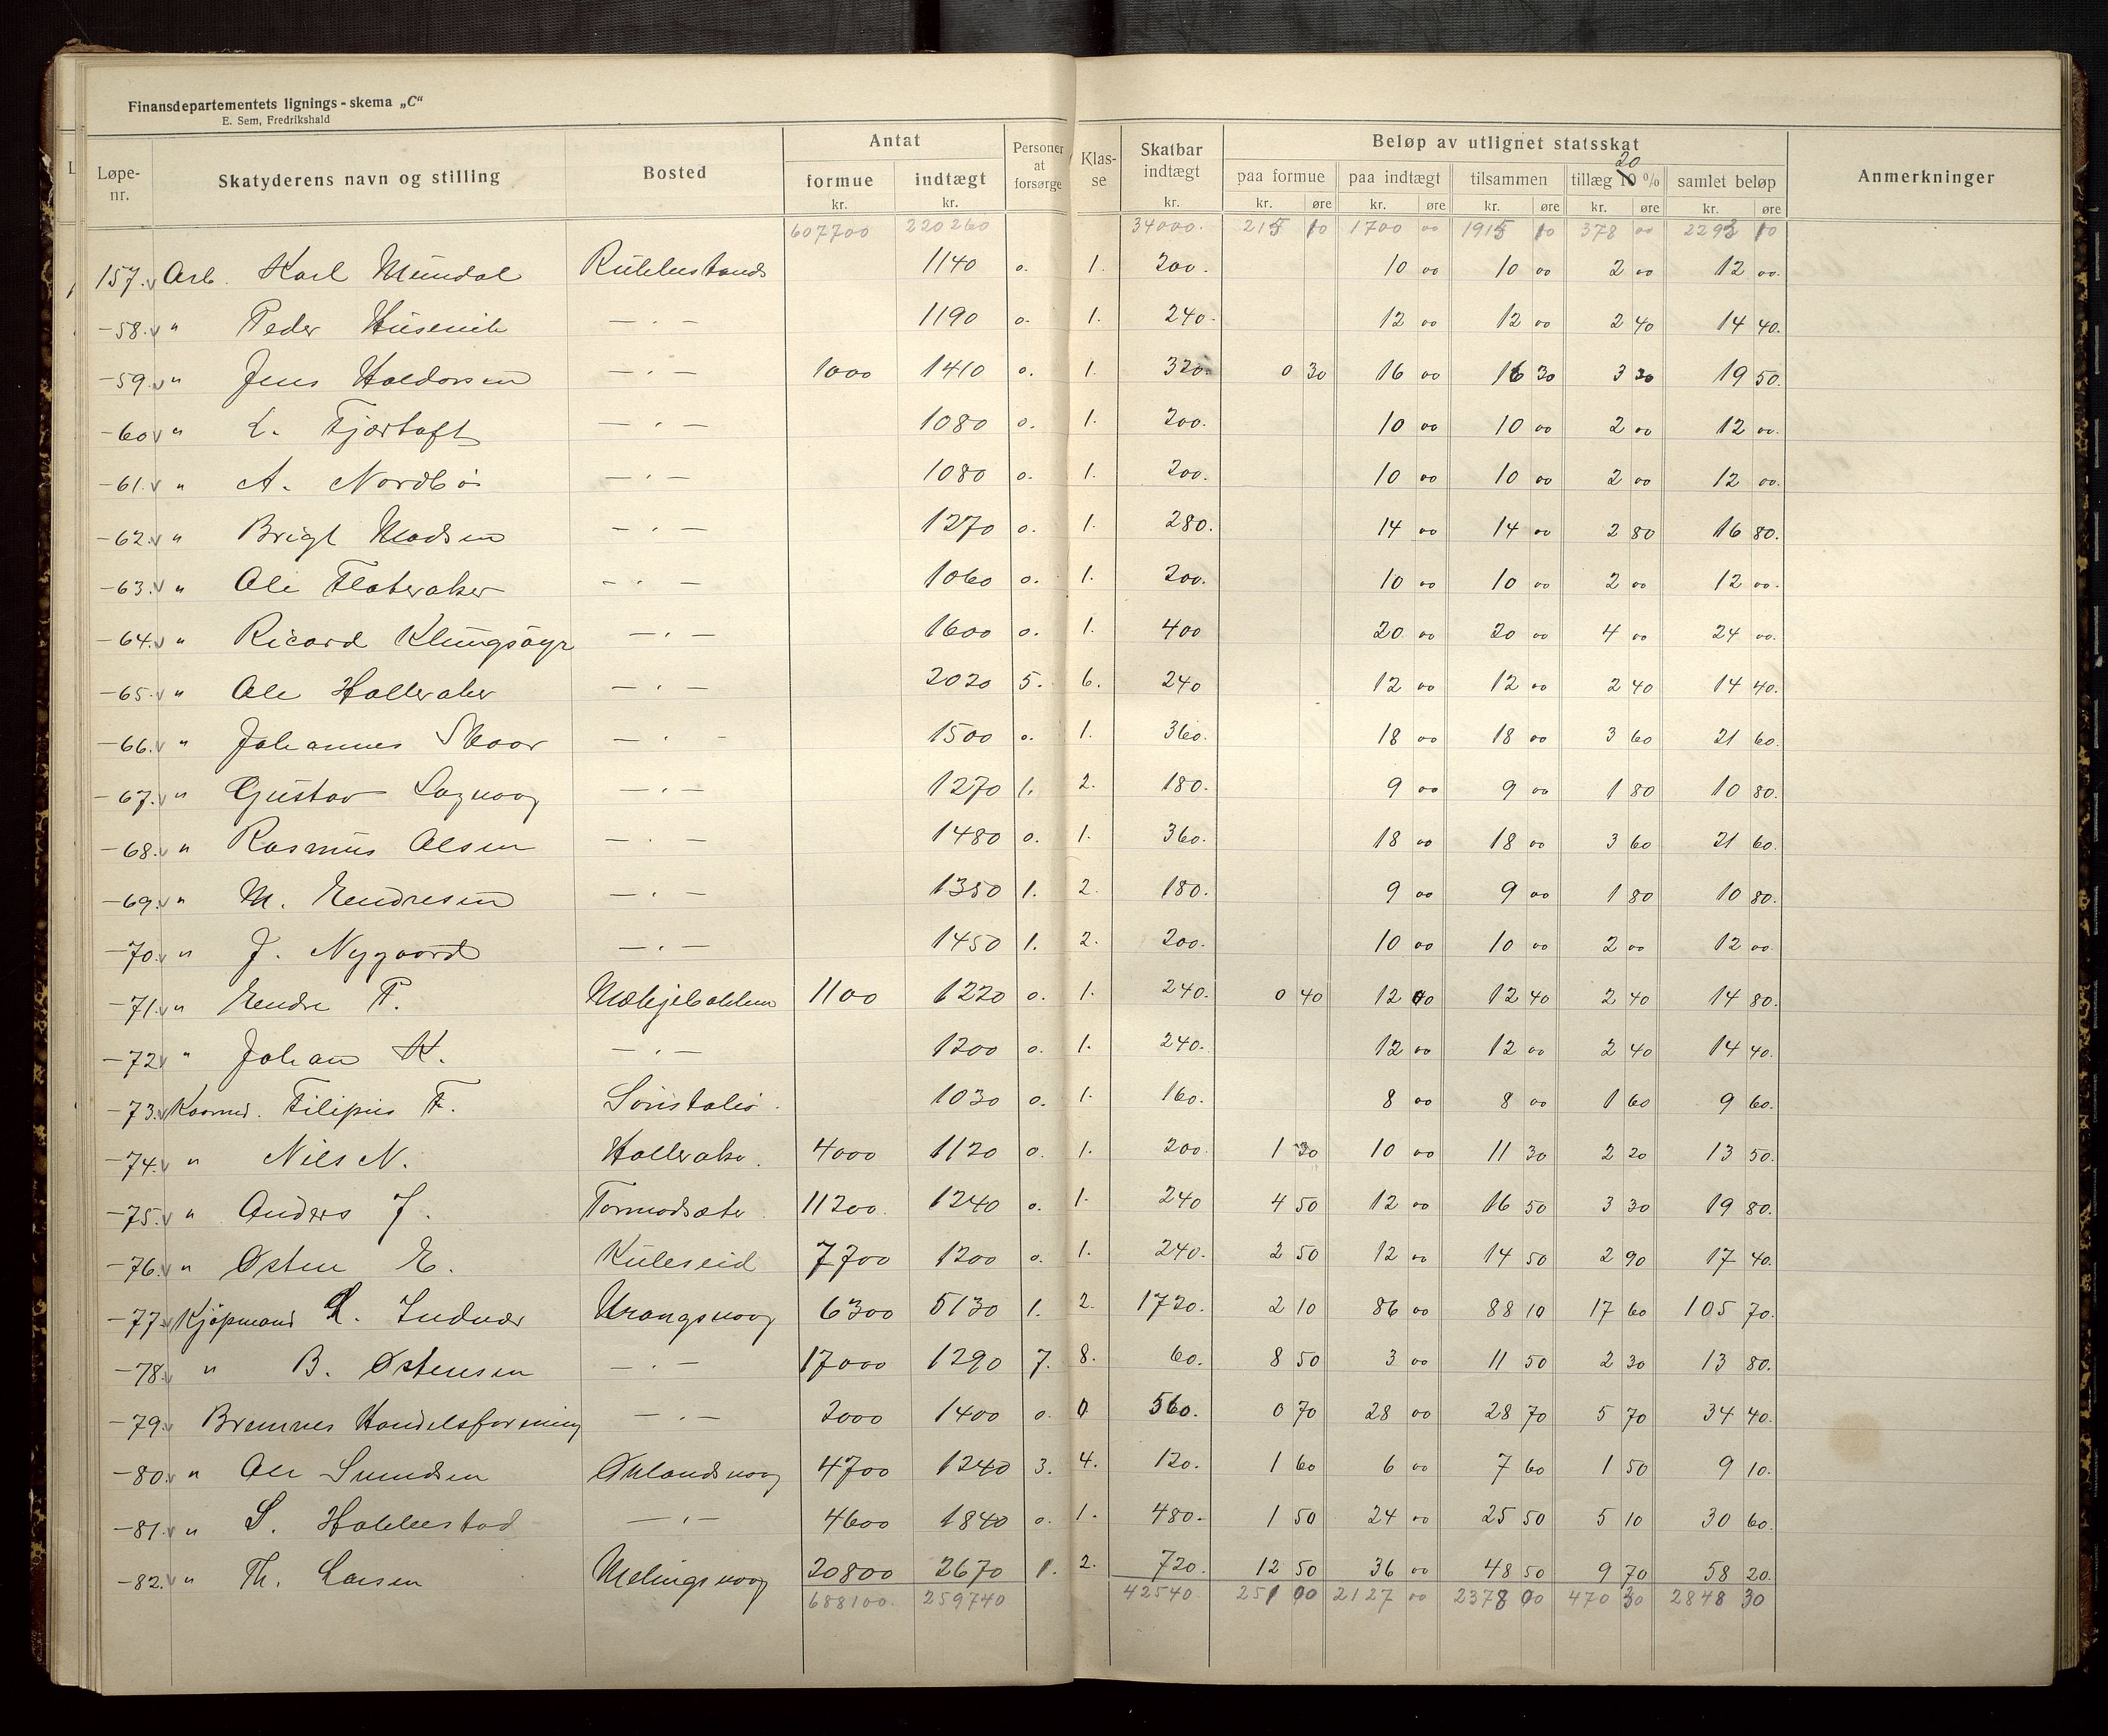 Finansdepartementets lignings-skema „C"
E. Sem, Fredrikshald
Løpe-nr. Skatyderens navn og stilling Bosted Antat formue kr. Antat indtægt kr. Personer at forsørge Klasse Skatbar indtægt kr. Beløp av utlignet statsskat paa formue kr. øre paa indtægt kr. øre tilsammen kr. øre tillæg 10 20 % kr. øre samlet beløp kr. øre Anmerkninger
607700 220260 34000. 215 10 1700 00 1915 10 378 00 2293 10
157. v Arb. Karl Mundal 1140 0. 1. 200. 10 00 10 00 2 00 12 00.
-58. v " Peder Husevik — " — 1190 0. 1. 240. 12 00 12 00 2 40 14 40.
-59. v " Jens Haldorsen — " — 1000 1410 0. 1. 320. 0 30 16 00 16 30 3 20 19 50.
-60 v " L. Fjørtoft — " — 1080 0. 1. 200. 10 00 10 00 2 00 12 00.
-61. v " A. Nordbø — " — 1080 0. 1. 200. 10 00 10 00 2 00 12 00.
-62. v " Brigt Madsen — " — 1270 0. 1. 280. 14 00 14 00 2 80 16 80.
-63. v " Ole Flateraker — " — 1060 0. 1. 200. 10 00 10 00 2 00 12 00.
-64. v " Ricard Klungsøyr — " — 1600 0. 1. 400 20 00 20 00 4 00 24 00.
-65. v " Ole Halleraker — " — 2020 5. 6. 240 12 00 12 00 2 40 14 40.
-66. v " Johannes Skaar — " — 1500 0. 1. 360. 18 00 18 00 3 60 21 60.
-67. v " Gustav — " — 1270 1. 2. 180. 9 00 9 00 1 80 10 80.
-68. v " Rasmus Olsen — " — 1480 0. 1. 360. 18 00 18 00 3 60 21 60.
-69. v " M. Endresen — " — 1350 1. 2. 180. 9 00 9 00 1 80 10 80.
-70. v " J. Nygaard — " — 1450 1. 2. 200. 10 00 10 00 2 00 12 00.
-71. v " Endre F. 1100 1220 0. 1. 240. 0 40 12 00 12 40 2 40 14 80.
-72 v " Johan K. — " — 1200 0. 1. 240. 12 00 12 00 2 40 14 40.
-73. v Filipus F. 1030 0. 1. 160. 8 00 8 00 1 60 9 60.
-74. v " Nils N. Halleraker. 4000 1120 0. 1. 200. 1 30 10 00 11 30 2 20 13 50.
-75. v " Anders J. Tormodsæter 11200. 1240 0. 1. 240 4 50 12 00 16 50 3 30 19 80.
-76. v " Østen E. Kuleseid 7700 1200 0. 1. 240. 2 50 12 00 14 50 2 90 17 40.
-77. v Kjøpmand L. Indvær Urangsvaag 6300 5130 1. 2. 1720. 2 10 86 00 88 10 17 60 105 70.
-78. v " B. Østensen — " — 17000 1290 7. 8. 60. 8 50 3 00 11 50 2 30 13 80.
-79. v Bremnes Handelsforening — " — 2000 1400 0. 0 560. 0 70 28 00 28 70 5 70 34 40.
-80. v " Ole Svendsen Øklandsvaag 4700 1240 3. 4. 120. 1 60 6 00 7 60 1 50 9 10.
-81. v " S. Hakkestad — " — 4600 1840 0. 1. 480. 1 50 24 00 25 50 5 10 30 60.
-82. v " Th. Larsen Melingsvaag 20800 2670 1. 2. 720. 12 50 36 00 48 50 9 70 58 20.
688100. 259740 42540. 251 00 2127 00 2378 00 470 30 2848 30